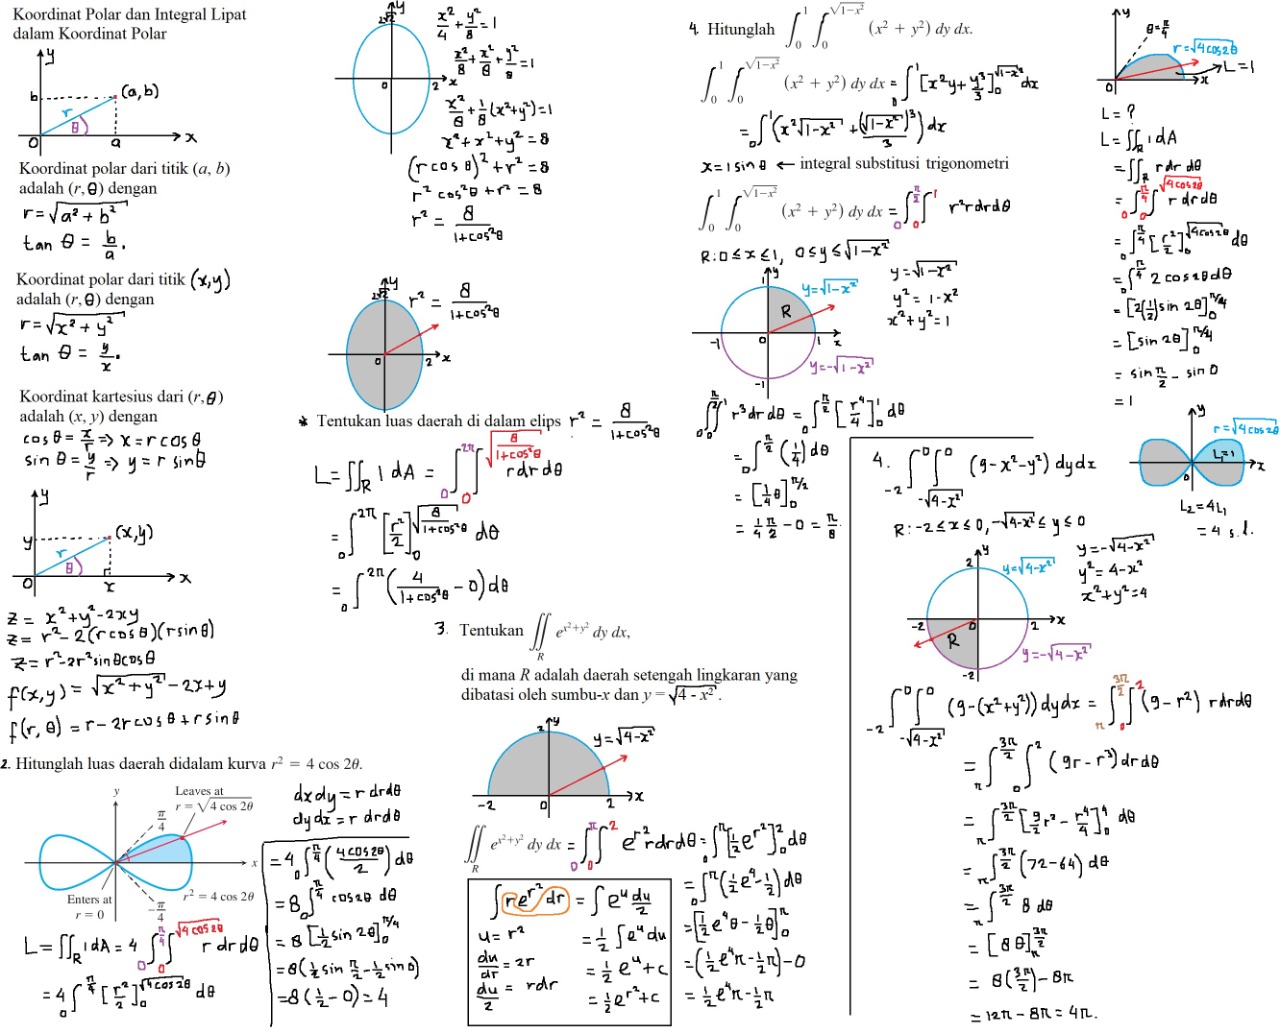 Koordinat Polar dan Integral Lipat
dalam Koordinat Polar
y
b
(a, b)
r
θ
0
a
x
Koordinat polar dari titik (a, b)
adalah (r, θ) dengan
r = √(a² + b²)
tan θ = b/a.
Koordinat polar dari titik (x, y)
adalah (r, θ) dengan
r = √(x² + y²)
tan θ = y/x.
Koordinat kartesius dari (r, θ)
adalah (x, y) dengan
cos θ = x/r ⇒ x = r cos θ
sin θ = y/r ⇒ y = r sin θ
y
y
(x, y)
r
θ
0
x
x
z = x² + y² - 2xy
z = r² - 2(r cos θ)(r sin θ)
z = r² - 2r² sin θ cos θ
f(x, y) = √(x² + y²) - 2x + y
f(r, θ) = r - 2r cos θ + r sin θ
2. Hitunglah luas daerah didalam kurva r² = 4 cos 2θ.
y
Leaves at
r = √(4 cos 2θ)
π/4
x
Enters at
r = 0
-π/4
r² = 4 cos 2θ
L = ∬_R 1 dA = 4 ∫_0^{π/4} ∫_0^{√(4 cos 2θ)} r dr dθ
= 4 ∫_0^{π/4} [r²/2]_0^{√(4 cos 2θ)} dθ
dx dy = r dr dθ
dy dx = r dr dθ
= 4 ∫_0^{π/4} (4 cos 2θ / 2) dθ
= 8 ∫_0^{π/4} cos 2θ dθ
= 8 [1/2 sin 2θ]_0^{π/4}
= 8(1/2 sin π/2 - 1/2 sin 0)
= 8(1/2 - 0) = 4
y
2√2
0
2
x
x²/4 + y²/8 = 1
x²/8 + x²/8 + y²/8 = 1
x²/8 + 1/8 (x² + y²) = 1
x² + x² + y² = 8
(r cos θ)² + r² = 8
r² cos² θ + r² = 8
r² = 8/(1 + cos² θ)
y
2√2
r² = 8/(1 + cos² θ)
0
2
x
* Tentukan luas daerah di dalam elips r² = 8/(1 + cos² θ)
L = ∬_R 1 dA = ∫_0^{2π} ∫_0^{√(8/(1 + cos² θ))} r dr dθ
= ∫_0^{2π} [r²/2]_0^{√(8/(1 + cos² θ))} dθ
= ∫_0^{2π} (4/(1 + cos² θ) - 0) dθ
3. Tentukan ∬_R e^{x²+y²} dy dx,
di mana R adalah daerah setengah lingkaran yang
dibatasi oleh sumbu-x dan y = √(4 - x²).
y
2
y = √(4 - x²)
-2
0
2
x
∬_R e^{x²+y²} dy dx = ∫_0^π ∫_0^2 e^{r²} r dr dθ = ∫_0^π [1/2 e^{r²}]_0^2 dθ
= ∫_0^π (1/2 e⁴ - 1/2) dθ
= [1/2 e⁴ θ - 1/2 θ]_0^π
= (1/2 e⁴ π - 1/2 π) - 0
= 1/2 e⁴ π - 1/2 π
∫ r e^{r²} dr = ∫ e^u du/2
u = r²
= 1/2 ∫ e^u du
du/dr = 2r
= 1/2 e^u + c
du/2 = r dr
= 1/2 e^{r²} + c
4. Hitunglah ∫_0^1 ∫_0^{√(1-x²)} (x² + y²) dy dx.
∫_0^1 ∫_0^{√(1-x²)} (x² + y²) dy dx = ∫_0^1 [x² y + y³/3]_0^{√(1-x²)} dx
= ∫_0^1 (x² √(1-x²) + (√(1-x²))³/3) dx
x = 1 sin θ ← integral substitusi trigonometri
∫_0^1 ∫_0^{√(1-x²)} (x² + y²) dy dx = ∫_0^{π/2} ∫_0^1 r² r dr dθ
R: 0 ≤ x ≤ 1, 0 ≤ y ≤ √(1-x²)
y
1
y = √(1-x²)
R
-1
0
1
x
y = -√(1-x²)
-1
y = √(1-x²)
y² = 1 - x²
x² + y² = 1
∫_0^{π/2} ∫_0^1 r³ dr dθ = ∫_0^{π/2} [r⁴/4]_0^1 dθ
= ∫_0^{π/2} (1/4) dθ
= [1/4 θ]_0^{π/2}
= 1/4 π/2 - 0 = π/8.
4. ∫_{-2}^0 ∫_{-√(4-x²)}^0 (9 - x² - y²) dy dx
R: -2 ≤ x ≤ 0, -√(4-x²) ≤ y ≤ 0
y
2
y = √(4-x²)
-2
0
2
x
R
y = -√(4-x²)
-2
y = -√(4-x²)
y² = 4 - x²
x² + y² = 4
∫_{-2}^0 ∫_{-√(4-x²)}^0 (9 - (x² + y²)) dy dx = ∫_π^{3π/2} ∫_0^2 (9 - r²) r dr dθ
= ∫_π^{3π/2} ∫_0^2 (9r - r³) dr dθ
= ∫_π^{3π/2} [9/2 r² - r⁴/4]_0^4 dθ
= ∫_π^{3π/2} (72 - 64) dθ
= ∫_π^{3π/2} 8 dθ
= [8θ]_π^{3π/2}
= 8(3π/2) - 8π
= 12π - 8π = 4π.
y
θ = π/4
r = √(4 cos 2θ)
L = 1
0
x
L = ?
L = ∬_R 1 dA
= ∬_R r dr dθ
= ∫_0^{π/4} ∫_0^{√(4 cos 2θ)} r dr dθ
= ∫_0^{π/4} [r²/2]_0^{√(4 cos 2θ)} dθ
= ∫_0^{π/4} 2 cos 2θ dθ
= [2(1/2) sin 2θ]_0^{π/4}
= [sin 2θ]_0^{π/4}
= sin π/2 - sin 0
= 1
y
r = √(4 cos 2θ)
L₁ = 1
0
x
L₂ = 4L₁
= 4 s.l.